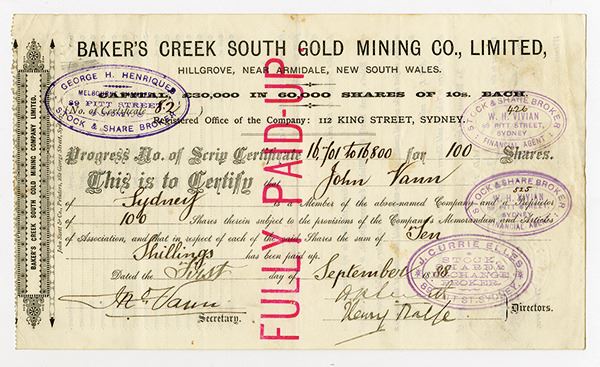 BAKER'S CREEK SOUTH GOLD MINING CO., LIMITED,
HILLGROVE, NEAR ARMIDALE, NEW SOUTH WALES.
CAPITAL, £30,000 IN 60,000 SHARES OF 10s. EACH.
(No. of Certificate 82)
Registered Office of the Company: 112 KING STREET, SYDNEY.
Progress No. of Scrip Certificate 16,701 to 16,800 for 100 Shares.
This is to Certify that John Vann
of Sydney is a Member of the above-named Company and Proprietor
of 100 Shares therein subject to the provisions of the Company's Memorandum and Articles
of Association, and that in respect of each of the said Shares the sum of Ten
Shillings has been paid up.
Dated the First day of September 1888
Vann
Secretary.
Henry
Directors.
FULLY PAID-UP
GEORGE H. HENRIQUES
MELBOURNE
PITT STREET
STOCK & SHARE BROKER
STOCK & SHARE BROKER
426
W. H. VIVIAN
PITT STREET,
SYDNEY
FINANCIAL AGENT
STOCK & SHARE BROKER
525
W. H. VIVIAN
SYDNEY
FINANCIAL AGENT
J. CURRIE ELLES
STOCK,
SHARE &
EXCHANGE
BROKER.
PITT ST. SYDNEY.
BAKER'S CREEK SOUTH GOLD MINING COMPANY LIMITED.